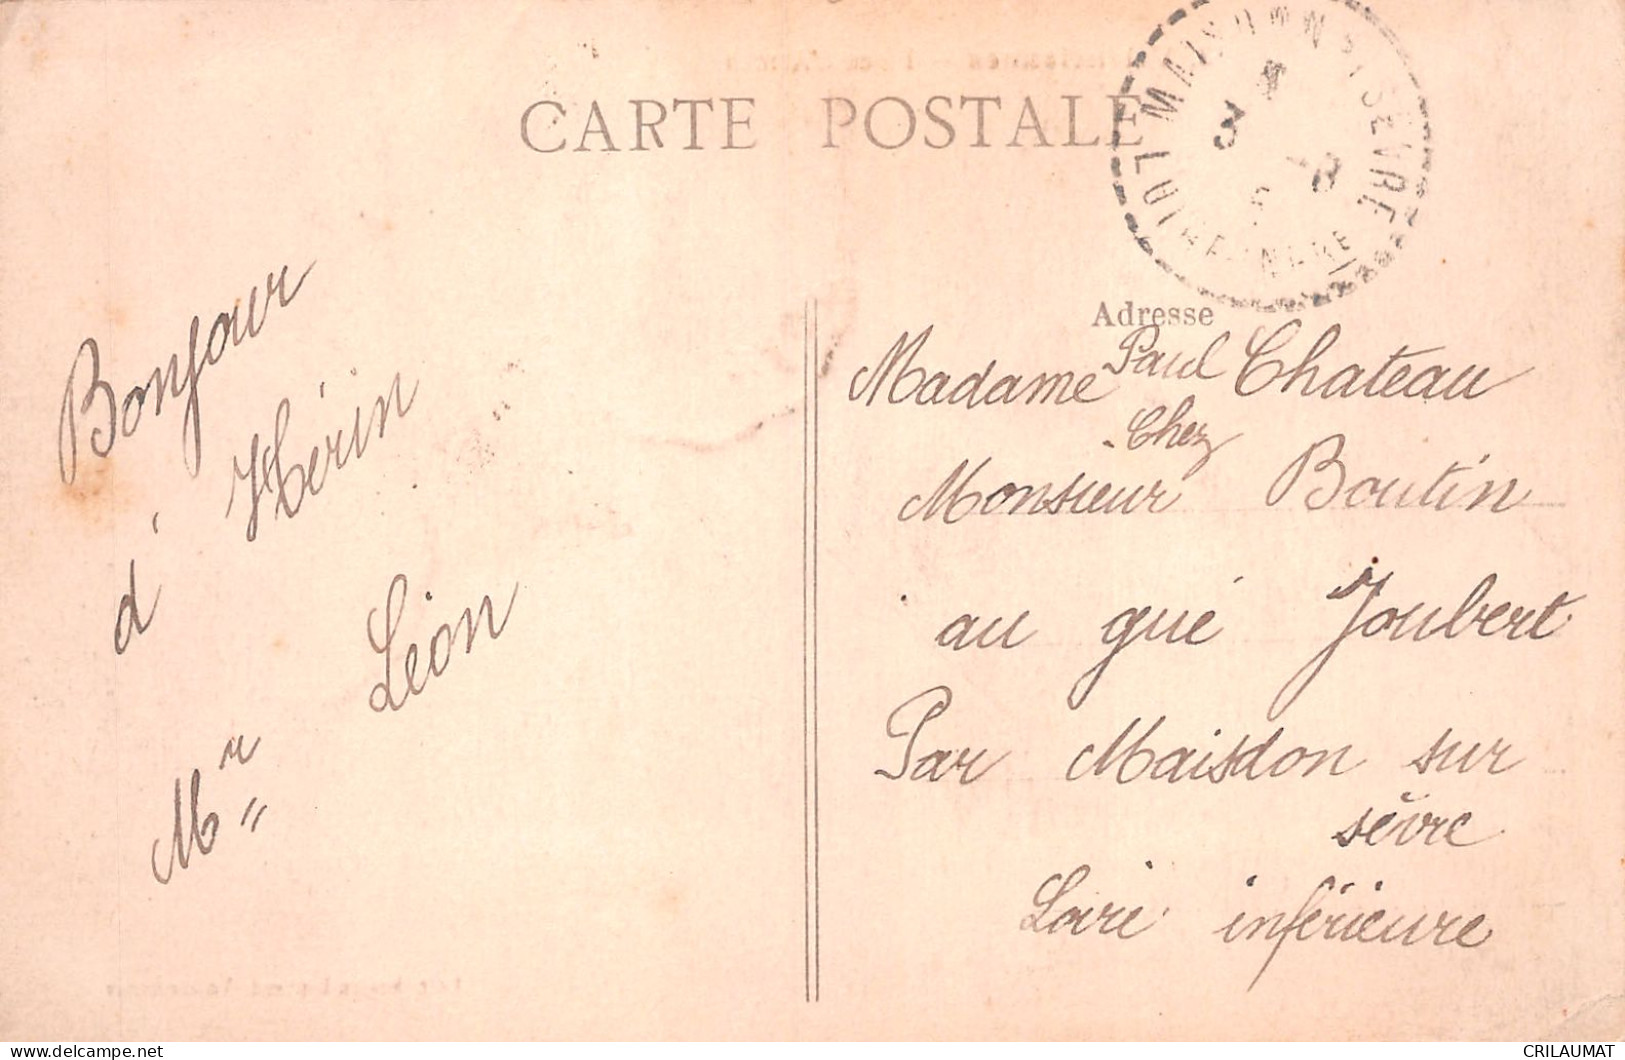 CARTE POSTALE
MAISDON S/ SEVRE
LOIRE-INFRE
3
Bonjour
d' Hérin
Mr Léon
Adresse
Madame Paul Chateau
Chez
Monsieur Boutin
au gué Joubert
Par Maisdon sur
sèvre
Loire inférieure
CRILAUMAT